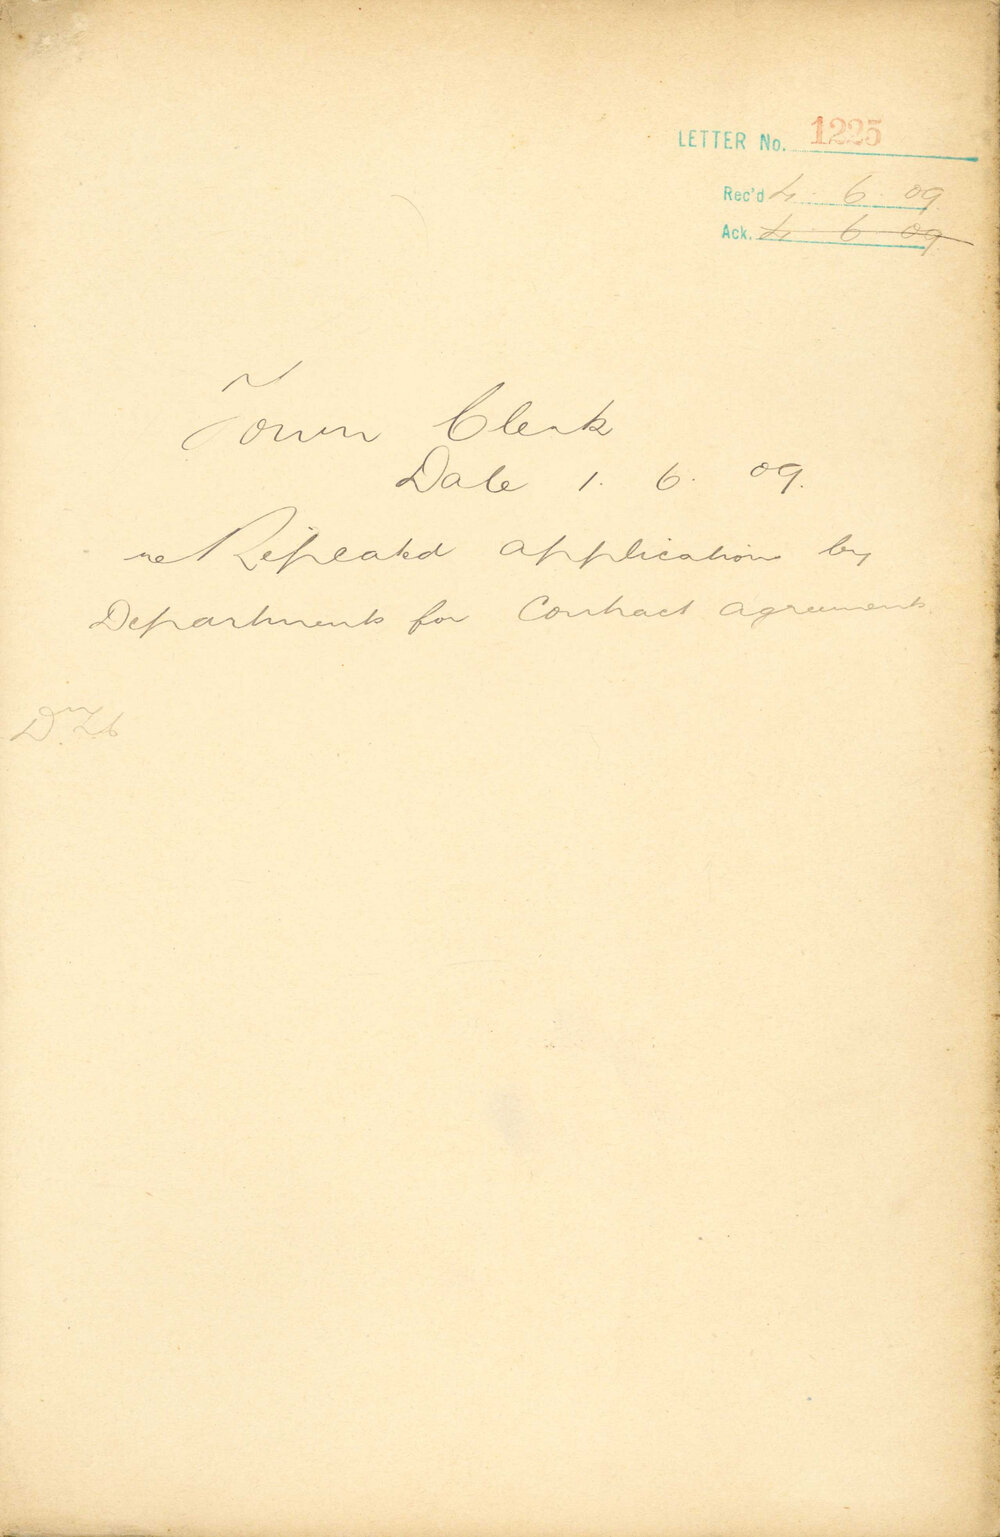 LETTER No. 1225
Rec'd 4. 6. 09
Ack. 4. 6. 09
Town Clerk
Date 1. 6. 09.
re Repeated applications by
Departments for Contract agreements.